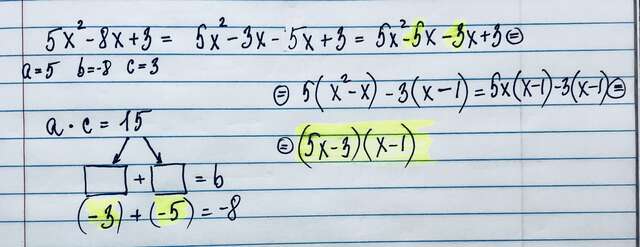 5x² - 8x + 3 = 5x² - 3x - 5x + 3 = 5x² - 5x - 3x + 3 =
a = 5 b = -8 c = 3
= 5(x² - x) - 3(x - 1) = 5x(x - 1) - 3(x - 1) =
a · c = 15
= (5x - 3)(x - 1)
□ + □ = b
(-3) + (-5) = -8